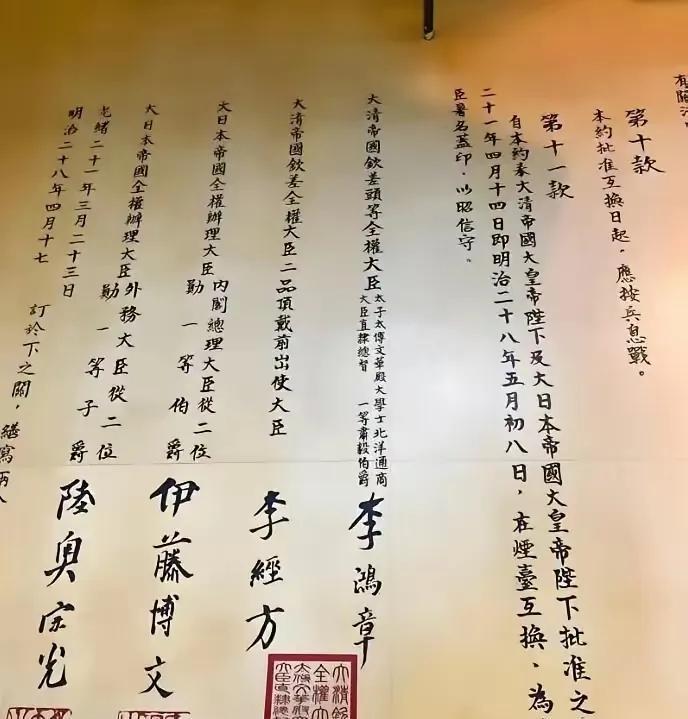 第十款
本約批准互換日起,應按兵息戰。
第十一款
自本約奉大清帝國大皇帝陛下及大日本帝國大皇帝陛下批准之
二十一年四月十四日即明治二十八年五月初八日,在煙臺互換、為
臣署名蓋印,以昭信守。
大清帝國欽差頭等全權大臣
太子太傅文華殿大學士北洋通商
大臣直隸總督 一等肅毅伯爵
李鴻章
大清帝國欽差全權大臣二品頂戴前出使大臣
李經方
大日本帝國全權辦理大臣
內閣總理大臣從二位
勳一等伯爵
伊藤博文
大日本帝國全權辦理大臣
外務大臣從二位
勳一等子爵
陸奧宗光
光緒二十一年三月二十三日
明治二十八年四月十七
訂於下之關,繕寫兩